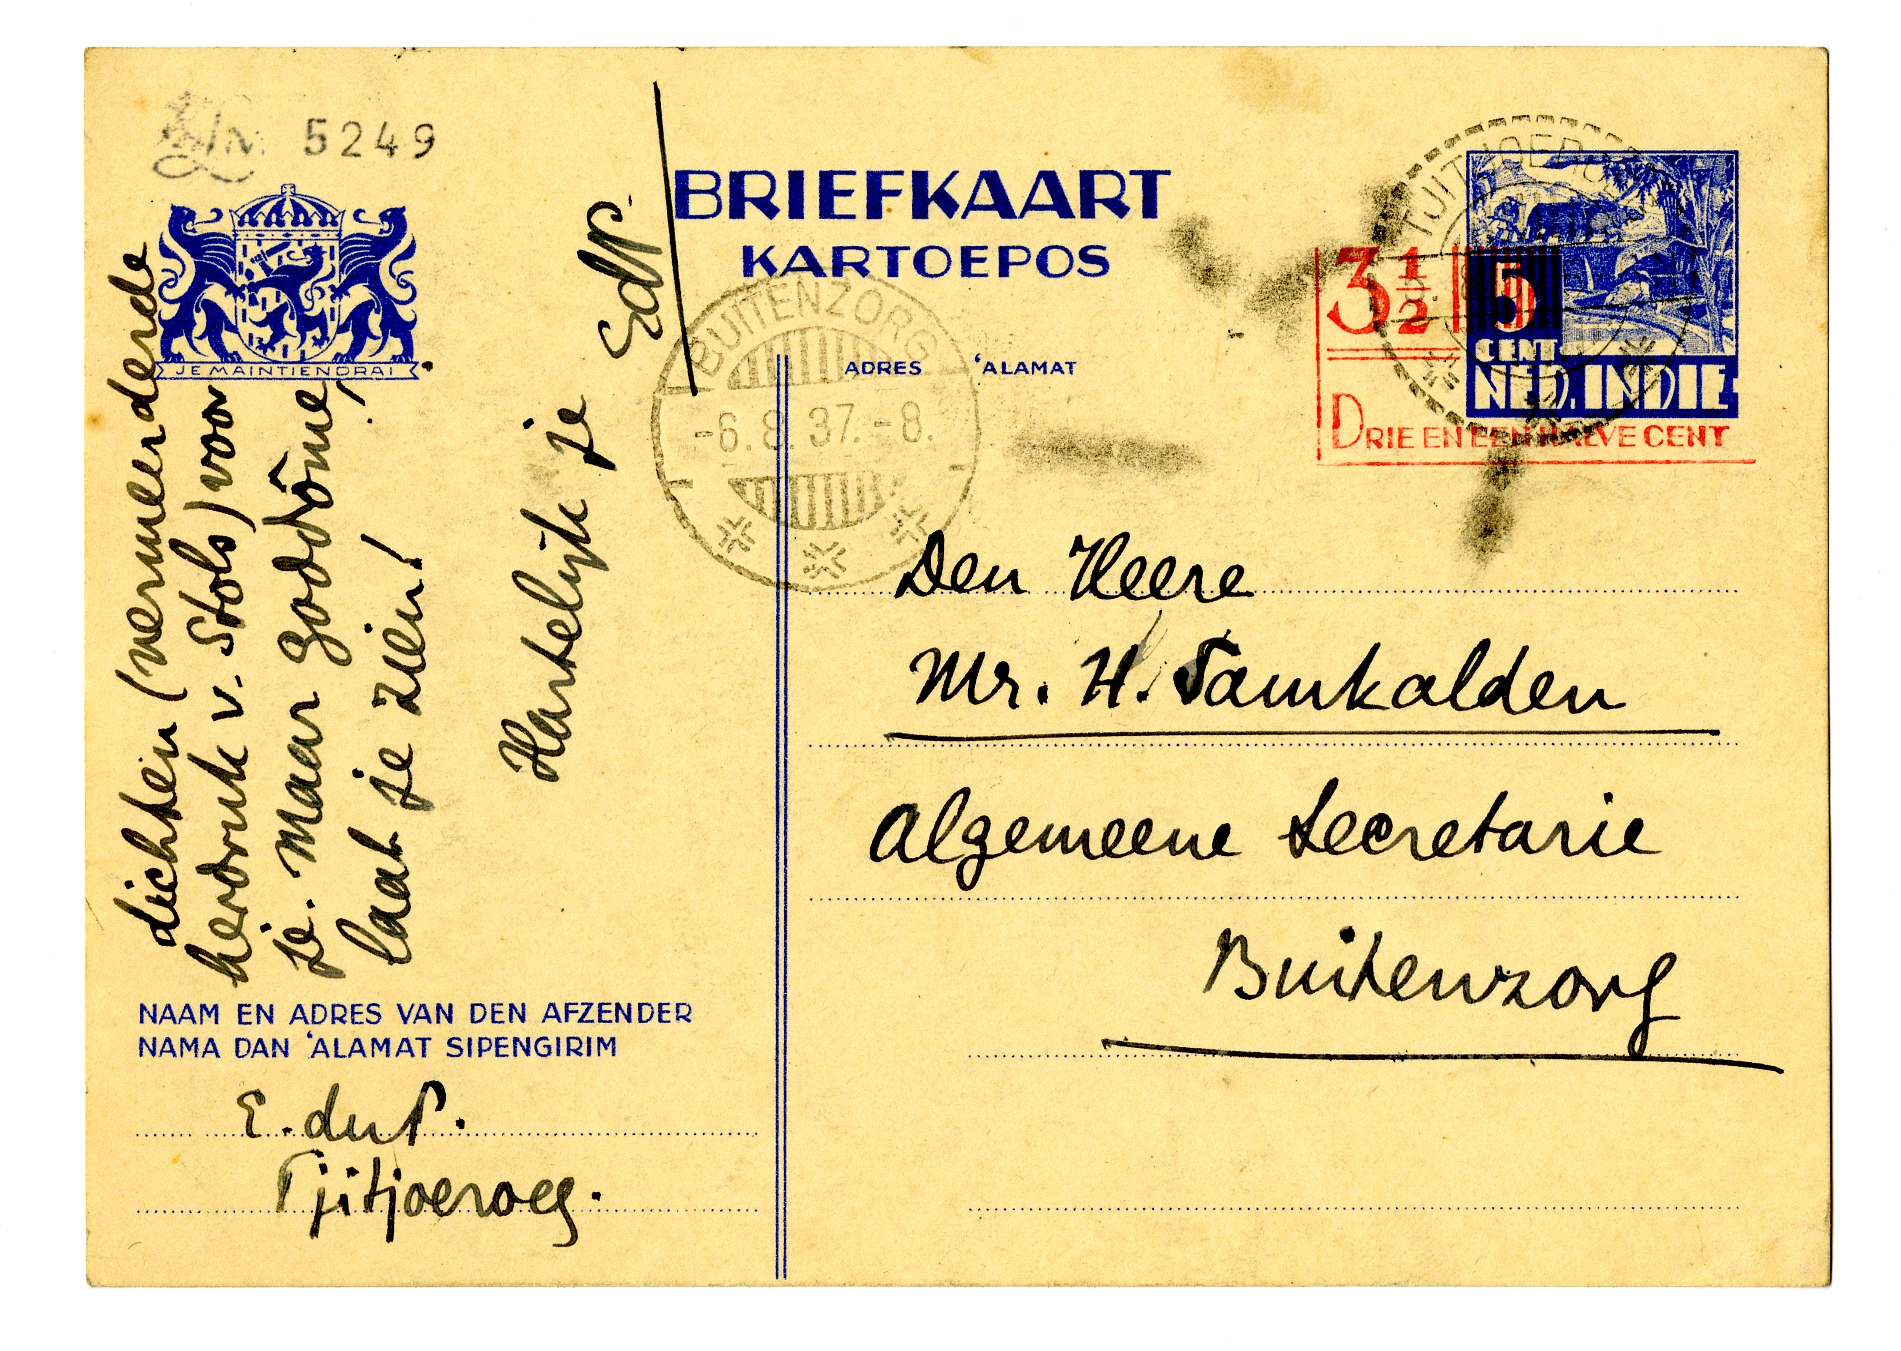 LM 5249
JE MAINTIENDRAI
BRIEFKAART
KARTOEPOS
ADRES 'ALAMAT
BUITENZORG
-6.8.37.-8.
TJITJOEROEG
3½
5
CENT
NED. INDIE
DRIE EN EEN HALVE CENT
dichten (vermeerderde
herdruk v. Stols) voor
je. Maar goddôme,
laat je zien!
Hartelijk je
EdP.
Den Heere
Mr. H. Samkalden
Algemeene Secretarie
Buitenzorg
NAAM EN ADRES VAN DEN AFZENDER
NAMA DAN 'ALAMAT SIPENGIRIM
E. du P.
Tjitjoeroeg.